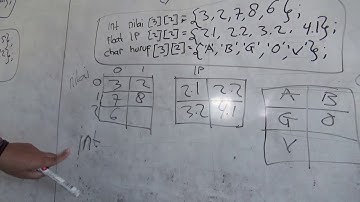 int nilai [3][2] = {3, 2, 7, 8, 6};
float IP [2][2] = {2.1, 2.2, 3.2, 4.1};
char huruf [3][2] = {'A', 'B', 'G', 'O', 'V'};
nilai
0 1
0 3 2
1 7 8
2 6
IP
2.1 2.2
3.2 4.1
A B
G O
V
int